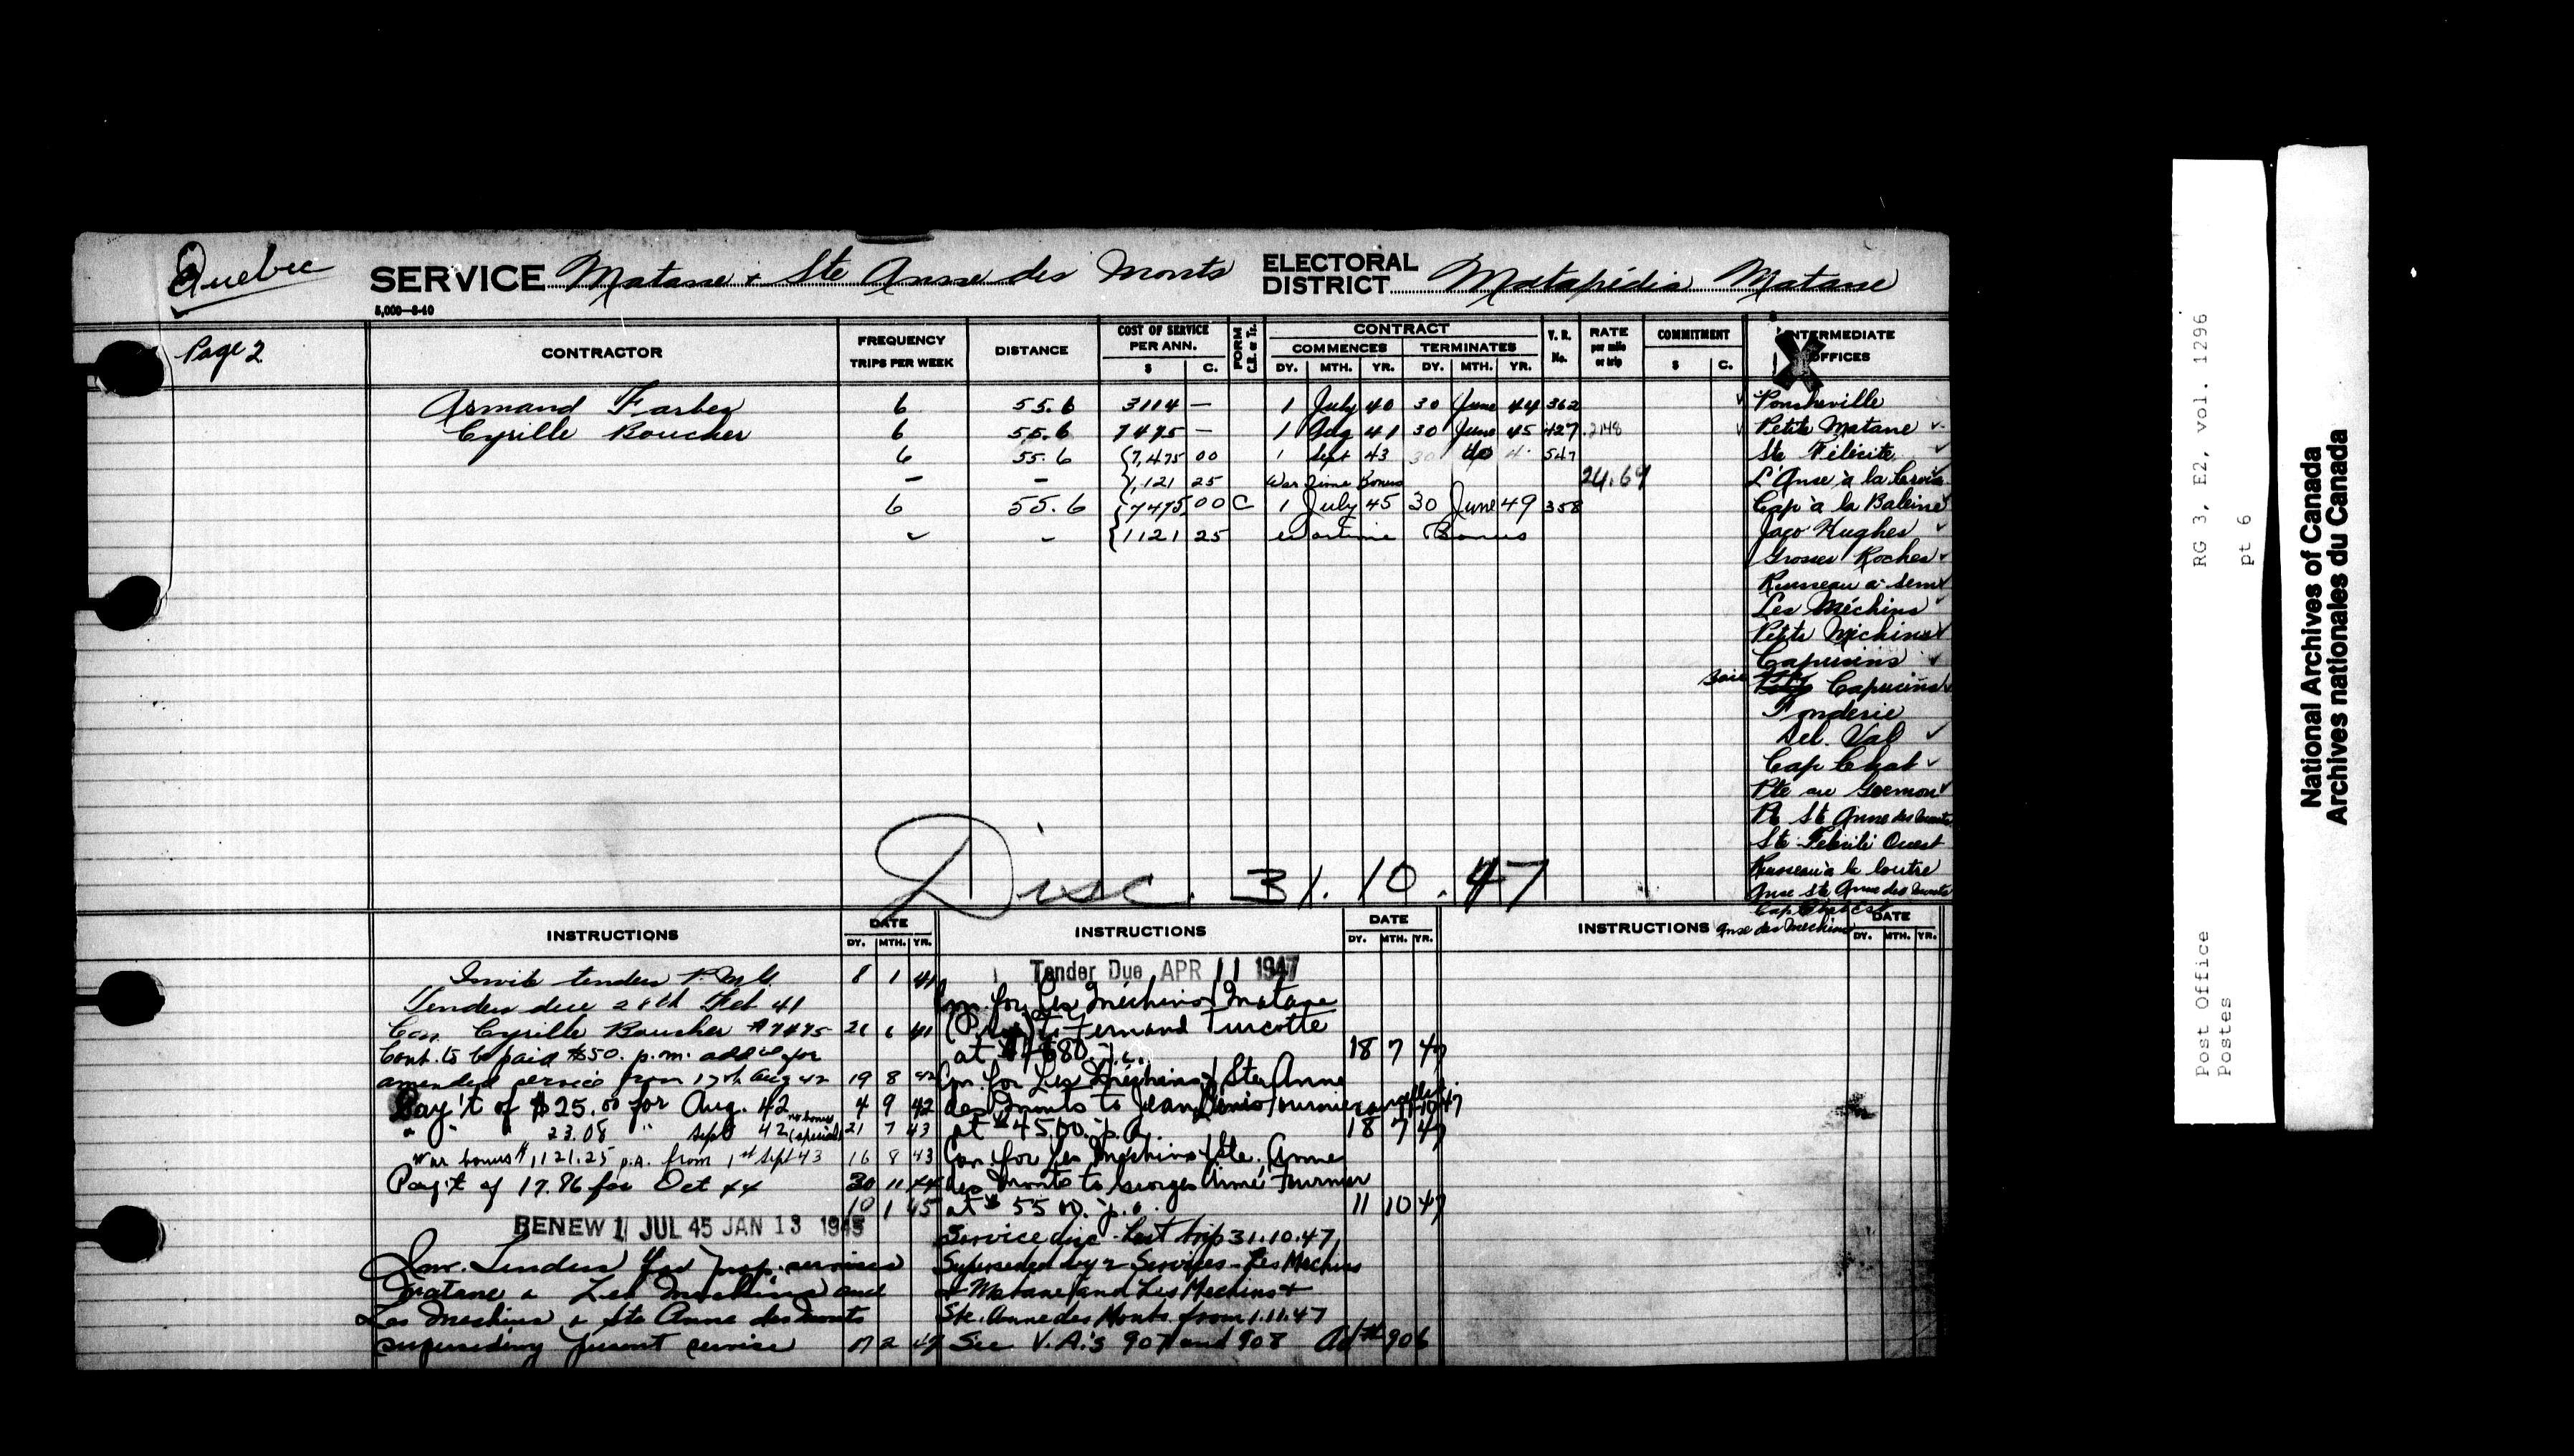 Quebec
SERVICE Matane & Ste Anne des Monts ELECTORAL DISTRICT Matapédia Matane
5,000-8-40
Page 2
CONTRACTOR FREQUENCY TRIPS PER WEEK DISTANCE COST OF SERVICE PER ANN. $ C. FORM CONTRACT COMMENCES DY. MTH. YR. TERMINATES DY. MTH. YR. V.R. No. RATE per mile or trip COMMITMENT $ C. INTERMEDIATE OFFICES
Armand 6 55.6 3114 — 1 July 40 30 June 44 362
Cyrille Boucher 6 55.6 7475 — 1 Aug 41 30 June 45 427 .2148
6 55.6 7,475 00 1 Sept 43 30 do 547
— — 1,121 25 War Time Bonus 24.69
6 55.6 7475 00 C 1 July 45 30 June 49 358
1121 25 Wartime Bonus
Petite Matane
Ste Félicité
L'Anse à la
Cap à la Baleine
Jaco Hughes
Grosses Roches
Ruisseau à Sem
Les Méchins
Petits Méchins
Capucins
Baie Capucins
Fonderie
Del. Val
Cap Chat
Pte au Goemon
Pte Ste Anne des Monts
Ste Félicité Ouest
Ruisseau à la loutre
Anse Ste Anne des Monts
Cap Chat Est
Anse des Méchins
Disc. 31.10.47
INSTRUCTIONS DATE DY. MTH. YR. INSTRUCTIONS DATE DY. MTH. YR. INSTRUCTIONS DATE DY. MTH. YR.
Invite tenders P.M.G. 8 1 41
Tenders due 28th Feb 41
Con. Cyrille Boucher $7475 21 6 41
Cont. to be paid $50. p.m. addl for
amended service from 17th Aug 42 19 8 42
Pay't of $25.00 for Aug. 42 4 9 42
" " 23.08 " Sept 42 no bonus (special) 21 7 43
War bonus $1,121.25 p.a. from 1st Sept 43 16 8 43
Pay't of 17.86 for Oct 44 30 11 44
10 1 45
RENEW 1 JUL 45 JAN 13 1945
Inv. Tenders for prop. services
Matane & Les Mechins and
Les Mechins & Ste Anne des Monts
superseding present service 17 2 47
Tender Due APR 11 1947
Con. for Les Méchins & Matane
to Fernand Turcotte
at 18 7 47
Con. for Les Méchins & Ste Anne
des Monts to Jean Fournier cancelled
at $4500. p.a. 18 7 47
Con. for Les Méchins & Ste. Anne
des Monts to Georges Aimé Fournier
at $5500. p.a. 11 10 47
Service disc. last trip 31.10.47,
Superseded by 2 Services - Les Mechins
& Matane and Les Mechins &
Ste. Anne des Monts from 1.11.47
See V.A.'s 907 and 908 906
RG 3, E2, vol. 1296
pt 6
Post Office
Postes
National Archives of Canada
Archives nationales du Canada